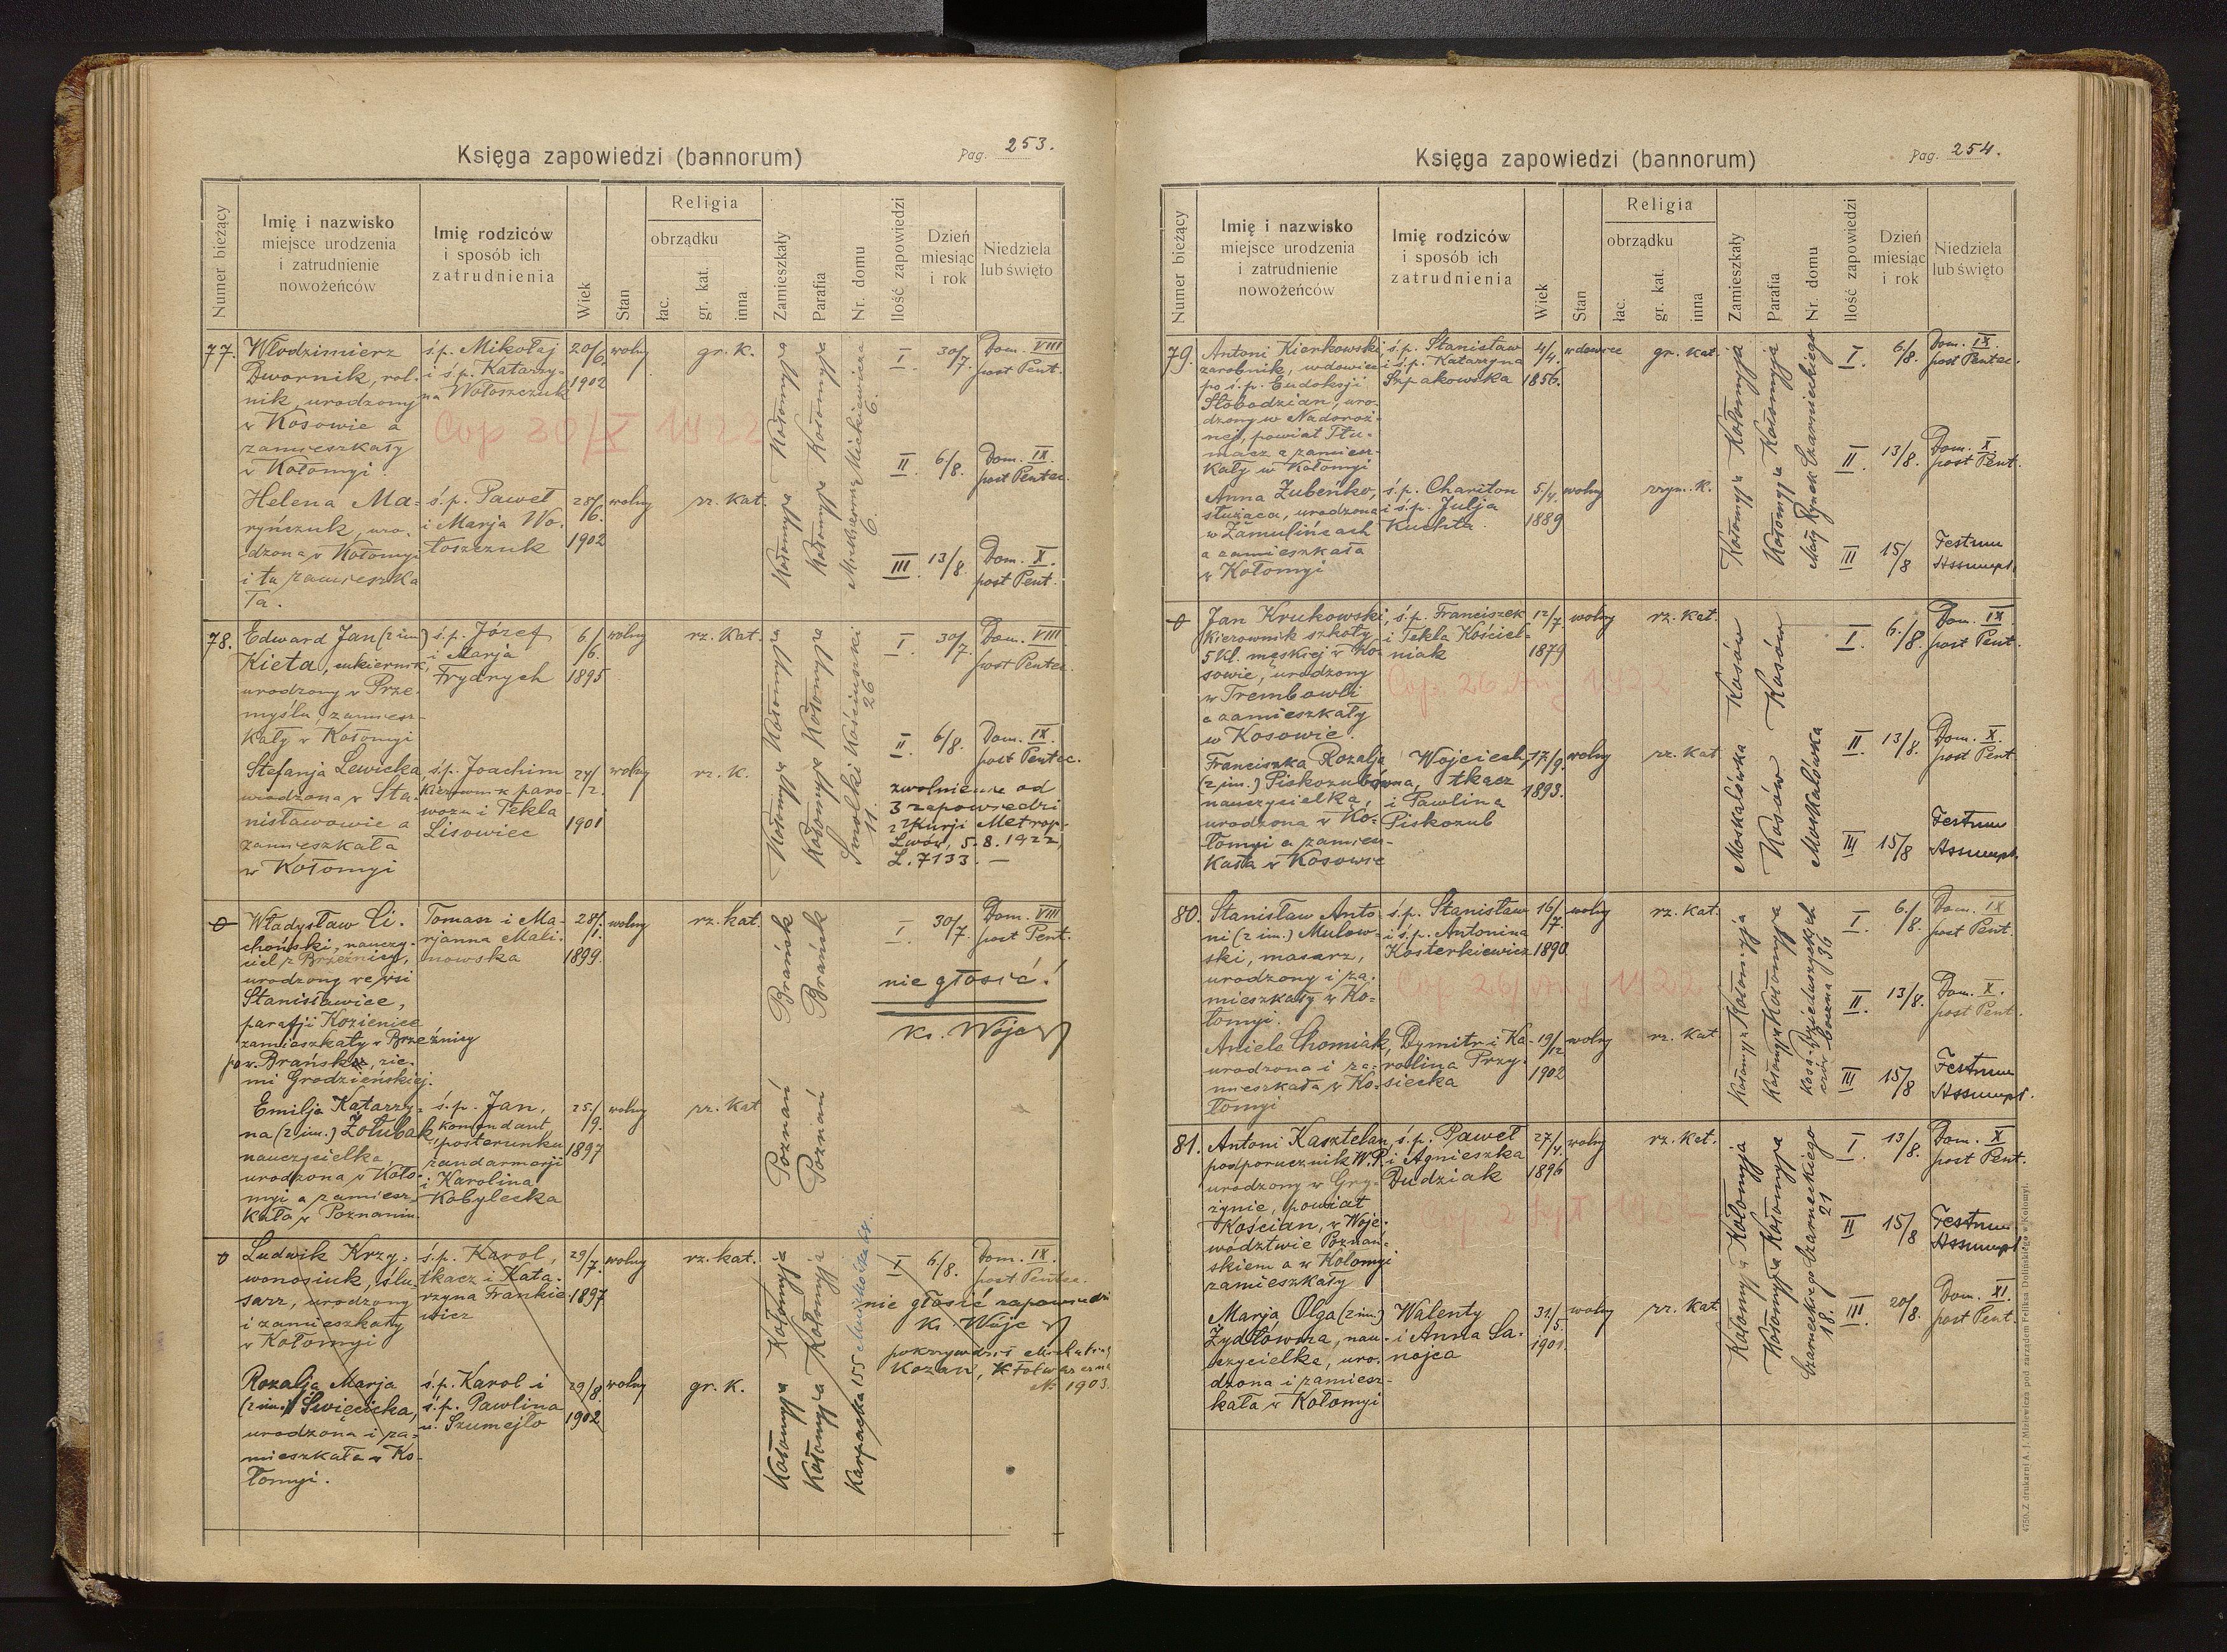 Księga zapowiedzi (bannorum)
Pag. 253.
Numer bieżący
Imię i nazwisko
miejsce urodzenia
i zatrudnienie
nowożeńców
Imię rodziców
i sposób ich
zatrudnienia
Wiek
Stan
Religia
obrządku
łac.
gr. kat.
inna
Zamieszkały
Parafia
Nr. domu
Ilość zapowiedzi
Dzień
miesiąc
i rok
Niedziela
lub święto
77.
Włodzimierz
Dwornik, rol-
nik, urodzony
w Kosowie a
zamieszkały
w Kołomyi
ś.p. Mikołaj
i ś.p. Katarzy-
na Wołoszczuk
20/6.
1902
wolny
gr. K.
Kołomyja
Kołomyja
Mickiewicza
6.
I
30/7.
Dom. VIII
post Pent.
Cop 30/X 1922
II
6/8.
Dom. IX.
post Pentec.
Helena Ma-
ryńczuk, uro-
dzona w Kołomyi
i tu zamieszka
ła.
ś.p. Paweł
i Marja Wo-
łoszczuk
28/6.
1902
wolny
rz. kat.
Kołomyja
Kołomyja
6.
III
13/8.
Dom. X.
post Pent.
78.
Edward Jan (2 im)
Kieta, cukiernik,
urodzony w Prze-
myślu, zamiesz-
kały w Kołomyi
ś.p. Józef
i Marja
Frydrych
6/6.
1895
wolny
rz. kat.
Kołomyja
Kołomyja
Kościuszki
26
I
30/7.
Dom. VIII
post Pentec.
II
6/8.
Dom. IX.
post Pentec.
Stefanja Lewicka,
urodzona w Sta-
nisławowie a
zamieszkała
w Kołomyi
ś.p. Joachim
kierownik paro-
wozu i Tekla
Lisowiec
24/2.
1901
wolny
rz. K.
Kołomyja
Kołomyja
Smolki
11.
zwolnienie od
3 zapowiedzi
z Kurji Metrop.
Lwów, 5.8.1922,
L. 7133. —
0
Władysław Ci-
choński, nauczy-
ciel z Brzeźnicy,
urodzony we wsi
Stanisławice,
parafji Kozienice
zamieszkały w Brzeźnicy
pow. Brańsk, zie-
mi Grodzieńskiej.
Tomasz i Ma-
rjanna Mali-
nowska
28/1.
1899.
wolny
rz. kat.
Brańsk
Brańsk
I
30/7.
Dom. VIII
post Pent.
nie głosić!
Ks. Wójc
Emilja Katarzy-
na (2 im.) Żołubak
nauczycielka,
urodzona w Koło-
myi a zamiesz-
kała w Poznaniu.
ś.p. Jan,
komendant
posterunku
żandarmerji
i Karolina
Kobylecka
25/9.
1897
wolny
rz. kat
Poznań
Poznań
0
Ludwik Krzy-
wonosiuk, ślu-
sarz, urodzony
i zamieszkały
w Kołomyi
ś.p. Karol,
tkacz i Kata-
rzyna Frankie
wicz
29/7.
1897
wolny
rz. kat.
Kołomyja
Kołomyja
I
6/8.
Dom. IX.
post Pentec.
nie głosić zapowiedzi
Ks. Wójc
Rozalja Marja
(2 im.) Święcicka,
urodzona i za-
mieszkała w Ko-
łomyi.
ś.p. Karol i
ś.p. Pawlina
Szumejło
29/8.
1902
wolny
gr. K.
Kołomyja
Kołomyja
Karpacka 155
Nr 1903.
Księga zapowiedzi (bannorum)
Pag. 254.
Numer bieżący
Imię i nazwisko
miejsce urodzenia
i zatrudnienie
nowożeńców
Imię rodziców
i sposób ich
zatrudnienia
Wiek
Stan
Religia
obrządku
łac.
gr. kat.
inna
Zamieszkały
Parafia
Nr. domu
Ilość zapowiedzi
Dzień
miesiąc
i rok
Niedziela
lub święto
79.
Antoni Kierkowski,
zarobnik, wdowiec
po ś.p. Eudoksji
Słobodzian, uro-
dzony w Nadoroż-
nej, powiat Tłu-
macz a zamiesz-
kały w Kołomyi
ś.p. Stanisław
i ś.p. Katarzyna
Szpakowska
4/4.
1856.
wdowiec
gr. kat.
Kołomyja
Kołomyja
Czarnieckiego
I.
6/8.
Dom. IX.
post Pentec.
II
13/8.
Dom. X.
post Pent.
Anna Zubeńko,
służąca, urodzona
w Zamulińcach
a zamieszkała
w Kołomyi
ś.p. Chariton
i ś.p. Julja
Kuchta.
5/4.
1889
wolny
rzym. K.
Kołomyja
Kołomyja
Mały Rynek
II
15/8
Festum
Assumpt.
0
Jan Krukowski,
kierownik szkoły
5 kl. męskiej w Ko-
sowie, urodzony
w Trembowli
a zamieszkały
w Kosowie.
ś.p. Franciszek
i Tekla Kościel-
niak
12/7
1879
wolny
rz. kat.
Kosów
Kosów
I
6/8.
Dom. IX
post Pent.
Cop. 26 Aug 1922
II
13/8.
Dom. X.
post Pent
Franciszka Rozalja
(2 im.) Piskozubówna,
nauczycielka,
urodzona w Ko-
łomyi a zamiesz-
kała w Kosowie
Wojciech,
tkacz
i Pawlina
Piskozub
17/9.
1893.
wolny
rz. kat
Moskalówka
Kosów
Moskalówka
III
15/8
Festum
Assumpt.
80.
Stanisław Anto-
ni (2 im.) Mulow-
ski, masarz,
urodzony i za-
mieszkały w Ko-
łomyi.
ś.p. Stanisław
i ś.p. Antonina
Kosterkiewicz
16/7.
1890.
wolny
rz. kat.
Kołomyja
Kołomyja
Dzieduszyckich
36
I
6/8.
Dom. IX
post Pent.
Cop. 26/Aug 1922
II
13/8.
Dom. X.
post Pent.
Aniela Chomiak,
urodzona i za-
mieszkała w Ko-
łomyi
Dymitr i Ka-
rolina Przy-
siecka
19/12
1902
wolny
rz. kat
Kołomyja
Kołomyja
boczna
III
15/8
Festum
Assumpt.
81.
Antoni Kasztelan,
podporucznik W.P.
urodzony w Gry-
żynie, powiat
Kościan, w Woje-
wództwie Poznań-
skiem a w Kołomyi
zamieszkały
ś.p. Paweł
i Agnieszka
Dudziak
27/4.
1896
wolny
rz. kat.
Kołomyja
Kołomyja
Czarneckiego
21
I
13/8.
Dom. X
post Pent.
II
15/8
Festum
Assumpt.
Marja Olga (2 im.)
Żydłówna, nau-
czycielka, uro-
dzona i zamiesz-
kała w Kołomyi
Walenty
i Anna Sa-
nojca
31/5.
1901.
wolny
rz. kat.
Kołomyja
Kołomyja
Czarneckiego
18.
III
20/8.
Dom. XI.
post Pent.
4750. Z drukarni A. J. Miziewicza pod zarządem Feliksa Dolińskiego w Kołomyi.